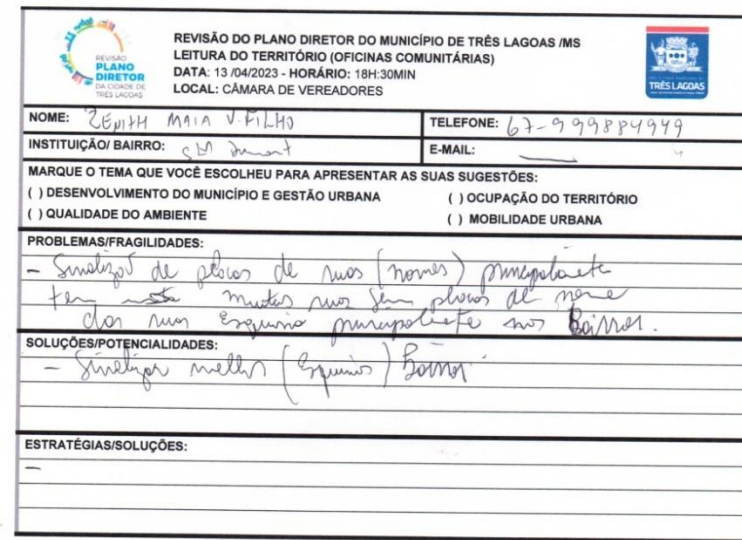 REVISÃO
PLANO
DIRETOR
DA CIDADE DE
TRÊS LAGOAS
REVISÃO DO PLANO DIRETOR DO MUNICÍPIO DE TRÊS LAGOAS /MS
LEITURA DO TERRITÓRIO (OFICINAS COMUNITÁRIAS)
DATA: 13 /04/2023 - HORÁRIO: 18H:30MIN
LOCAL: CÂMARA DE VEREADORES
TRÊS LAGOAS
NOME: ZENITH MAIA V. FILHO
TELEFONE: 67-999884949
INSTITUIÇÃO/ BAIRRO:
E-MAIL:
MARQUE O TEMA QUE VOCÊ ESCOLHEU PARA APRESENTAR AS SUAS SUGESTÕES:
( ) DESENVOLVIMENTO DO MUNICÍPIO E GESTÃO URBANA
( ) OCUPAÇÃO DO TERRITÓRIO
( ) QUALIDADE DO AMBIENTE
( ) MOBILIDADE URBANA
PROBLEMAS/FRAGILIDADES:
- de placas de ruas (nomes) principalmente
tem muitas ruas sem placas de nome
das ruas Esquina principalmente nos Bairros.
SOLUÇÕES/POTENCIALIDADES:
- Sinalizar melhor (Esquinas) Bairros
ESTRATÉGIAS/SOLUÇÕES:
-